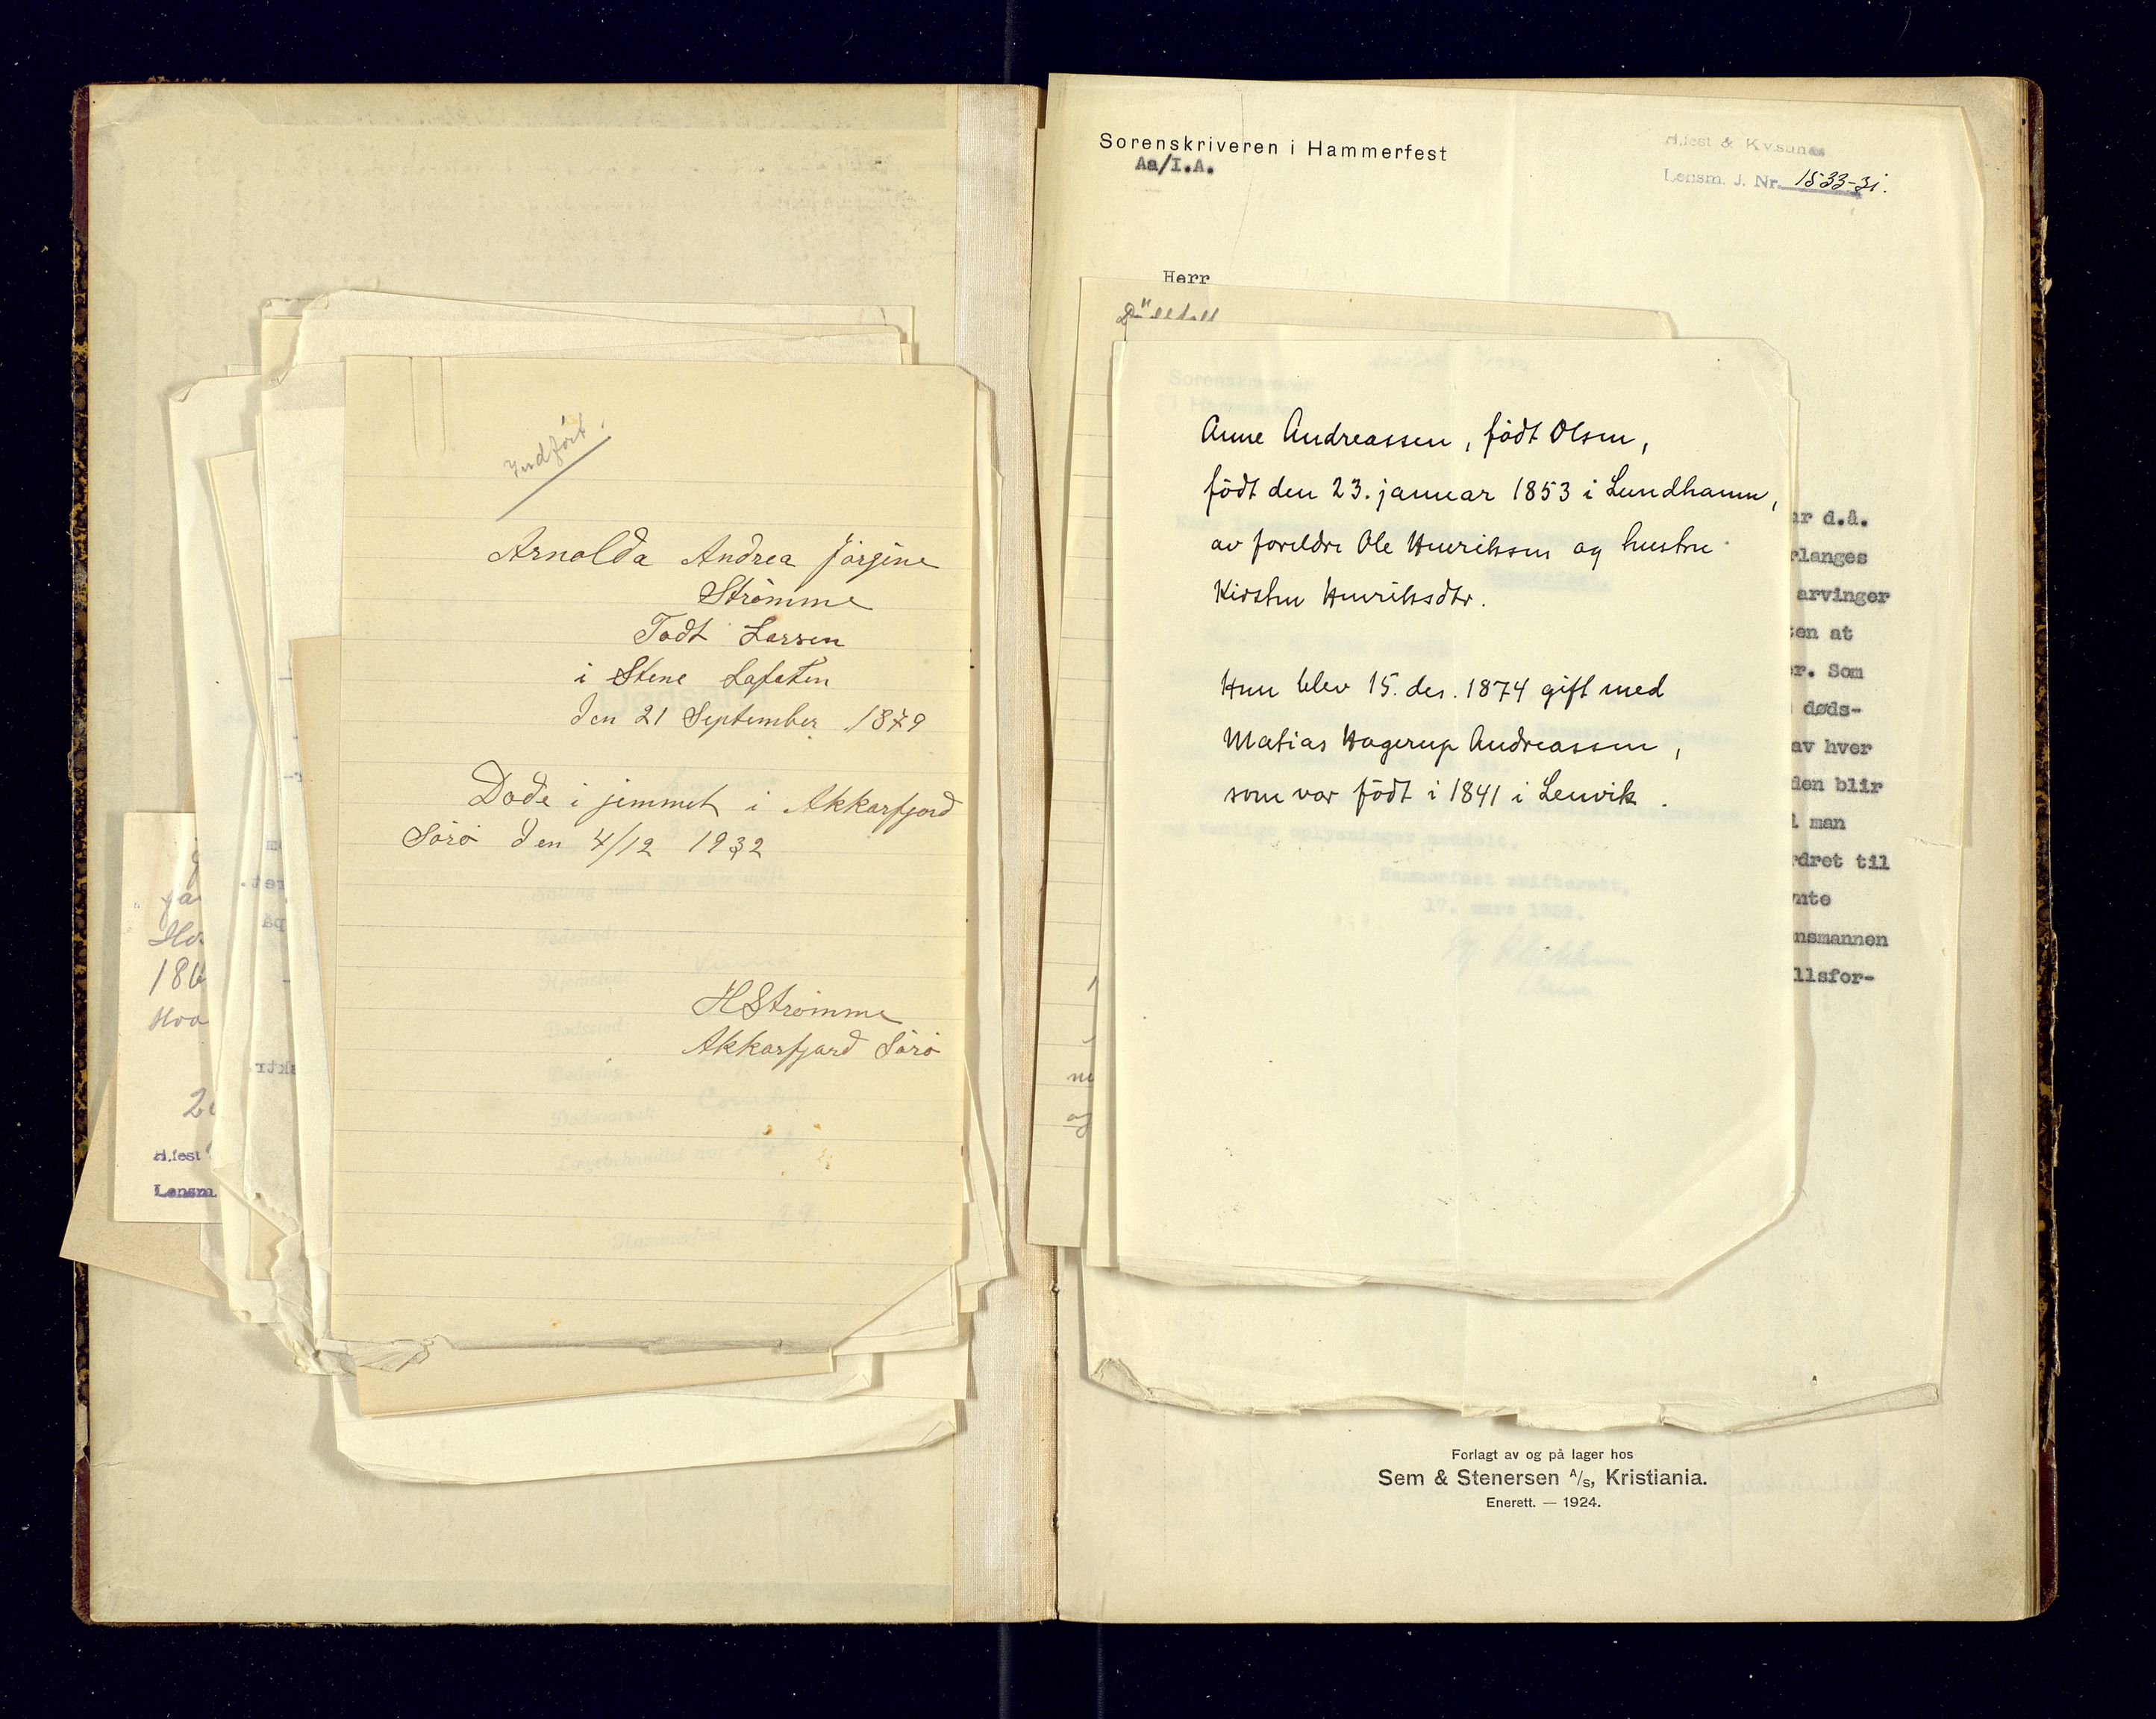 Indført.
Arnolda Andrea Jørgine
Strømme
Født Larsen
i Stene Lofoten
den 21 September 1879
Døde i jemmet i Akkarfjord
Sørø den 4/12 1932
H Strømme
Akkarfjord Sørø
fa
186
H.fest
Lensm.
Sorenskriveren i Hammerfest
Aa/I.A.
H.fest & Kv.sunds
Lensm. J. Nr. 1533-31.
Herr
Anne Andreassen, født Olsen,
født den 23. januar 1853 i Lundhamn,
av foreldre Ole Henriksen og hustru
Kirsten Henriksdtr.
Hun blev 15. des. 1874 gift med
Matias Hagerup Andreassen,
som var født i 1841 i Lenvik.
ar d.å.
rlanges
arvinger
ten at
er. Som
døds-
av hver
den blir
l man
rdret til
vnte
nsmannen
llsfor-
Forlagt av og på lager hos
Sem & Stenersen A/S, Kristiania.
Enerett. — 1924.